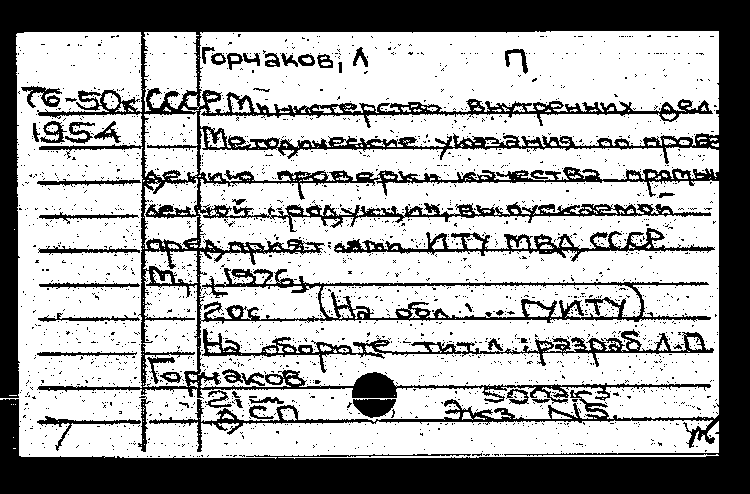 Горчаков, Л П
76-50к СССР. Министерство внутренних дел.
1954 Методические указания по прове
дению проверки качества промыш
ленной продукции, выпускаемой
предприятиями ИТУ МВД СССР
М., [1976]
20с. (На обл.: ...ГУИТУ).
На обороте тит.л.: разраб Л.П.
Горчаков.
21 см 500экз.
СП Экз №5.